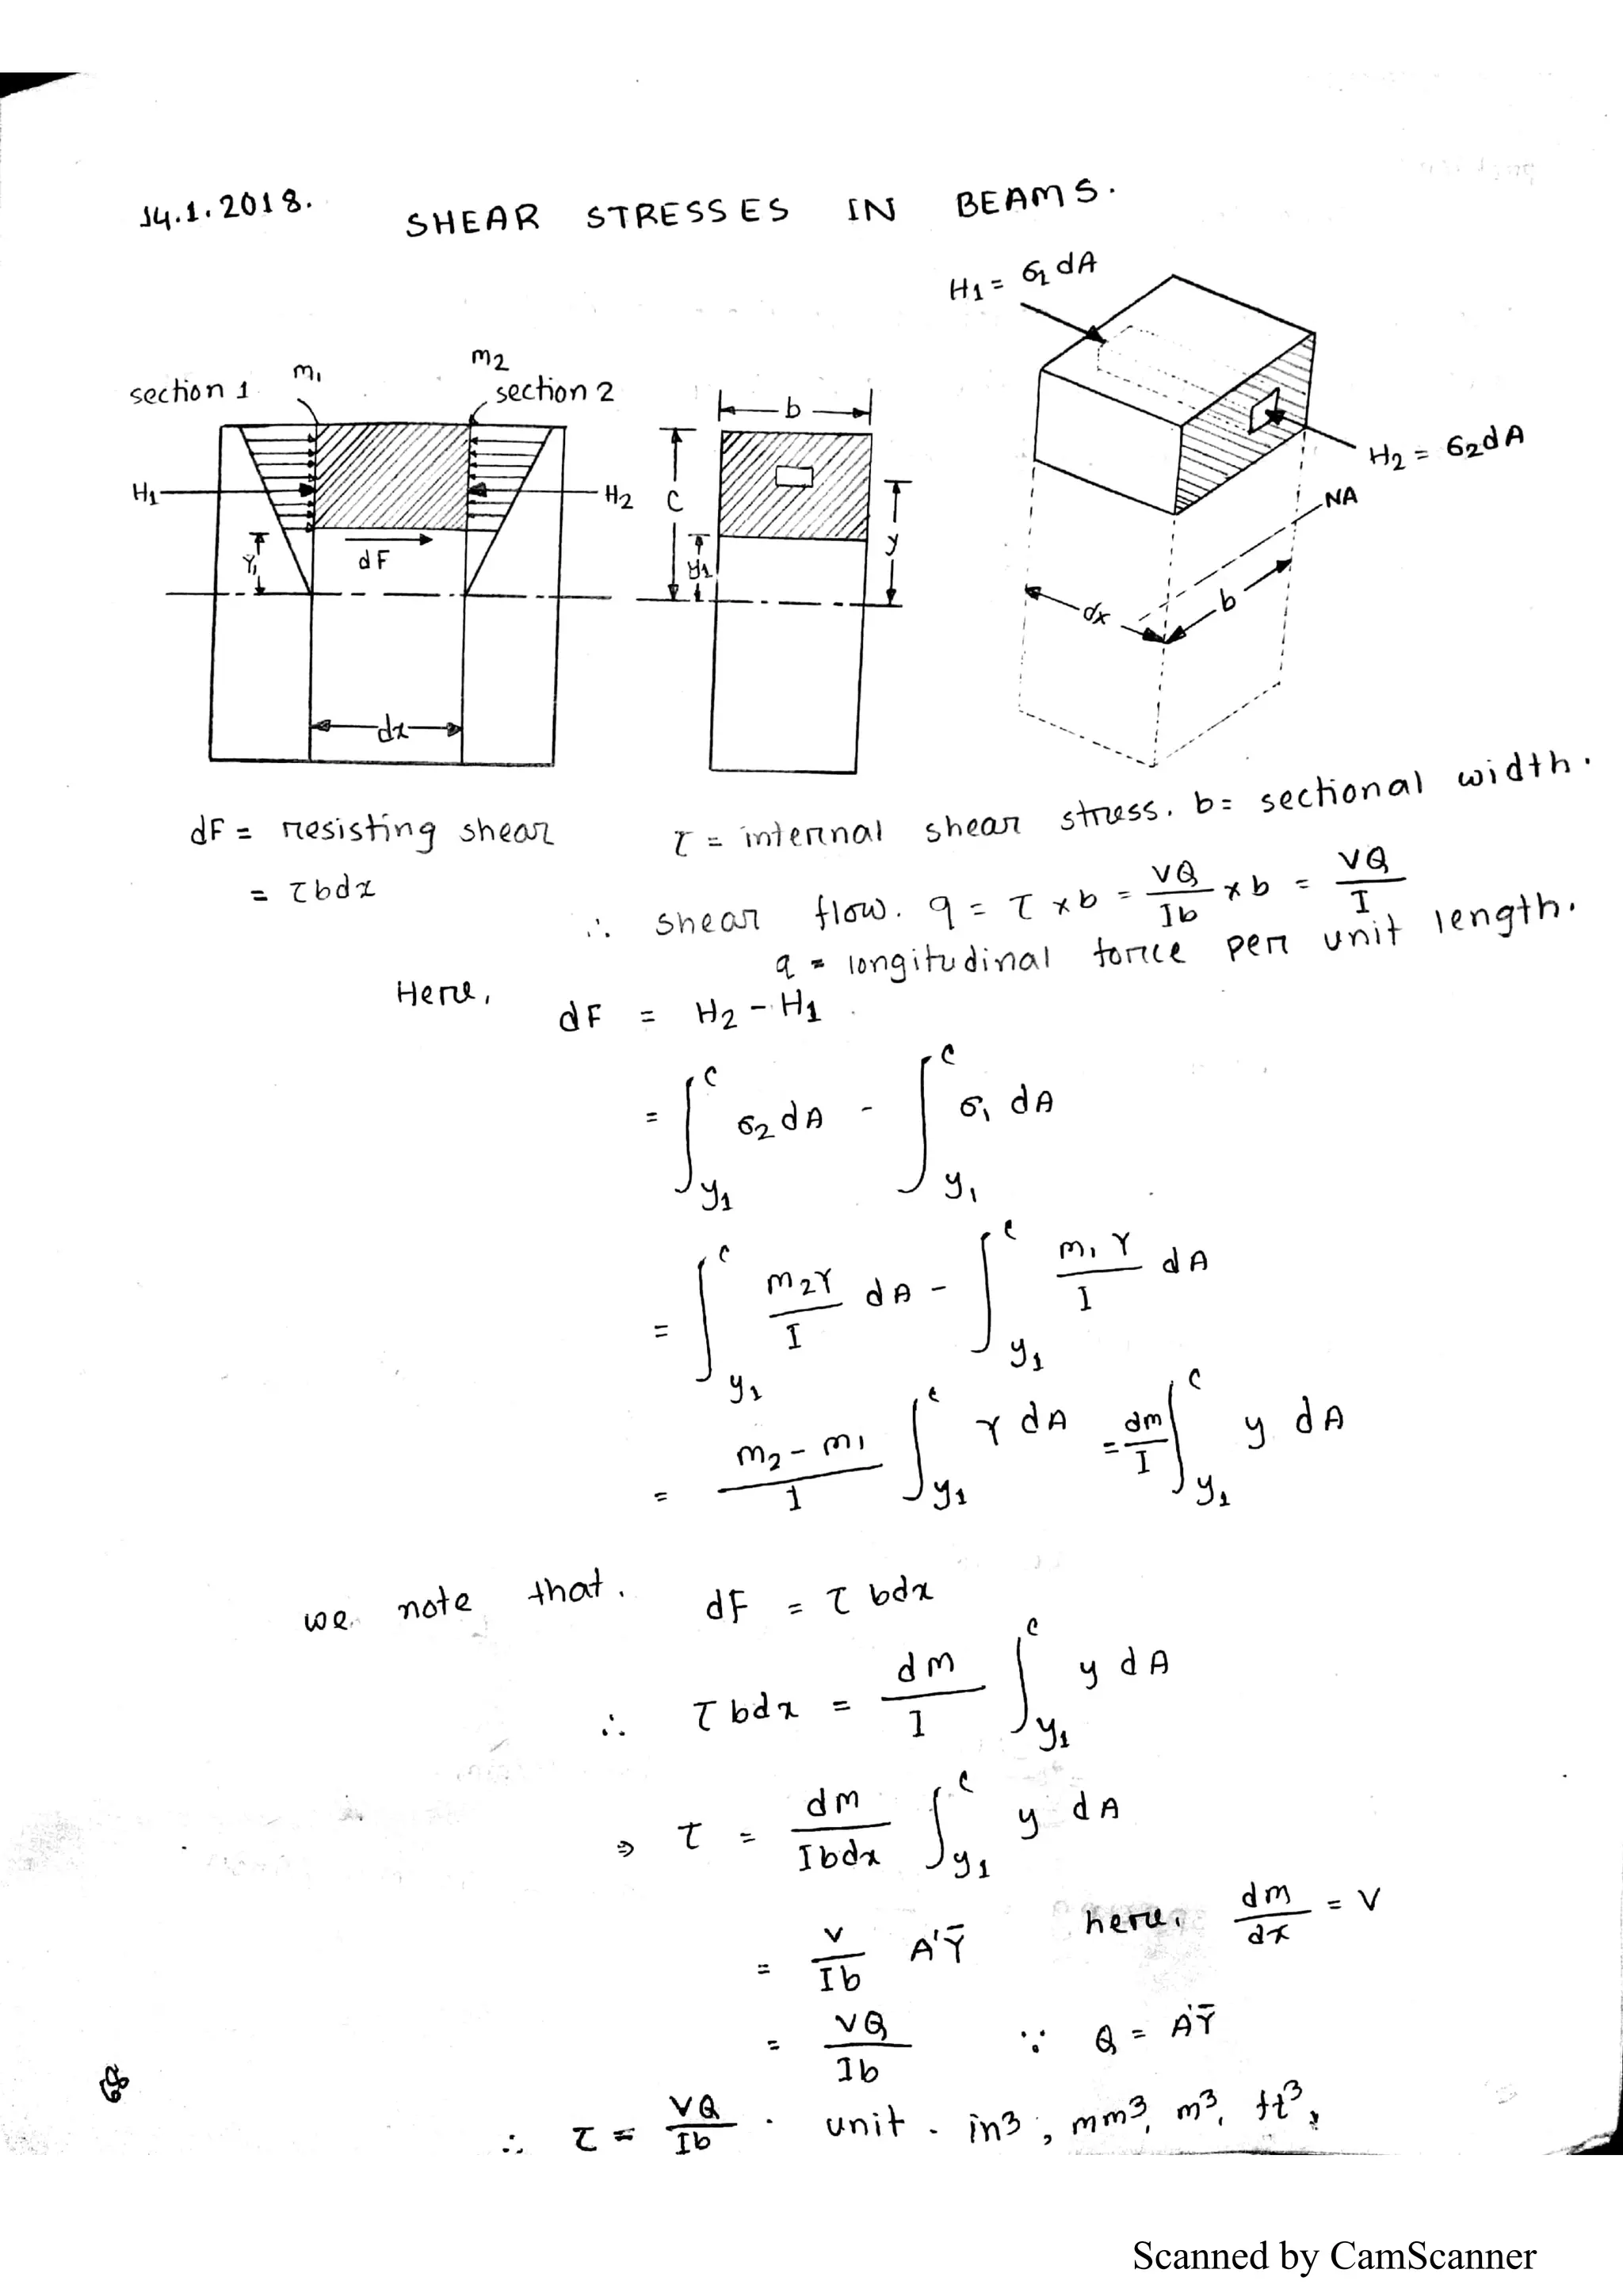 14.1.2018. SHEAR STRESSES IN BEAMS.
H1 = σ1 dA
m1
m2
section 1
section 2
b
H2 = σ2 dA
H1
H2
C
NA
Y1
dF
y1
y
dx
b
dx
dF = resisting shear
τ = internal shear stress. b = sectional width.
= τbdx
∴ shear flow. q = τ × b = VQ/Ib × b = VQ/I
q = longitudinal force per unit length.
Here, dF = H2 - H1
= ∫_{y1}^{c} σ2 dA - ∫_{y1}^{c} σ1 dA
= ∫_{y1}^{c} m2Y/I dA - ∫_{y1}^{c} m1Y/I dA
= (m2 - m1)/I ∫_{y1}^{c} Y dA = dm/I ∫_{y1}^{c} y dA
we note that. dF = τ bdx
∴ τ bdx = dm/I ∫_{y1}^{c} y dA
⇒ τ = dm/Ibdx ∫_{y1}^{c} y dA
= V/Ib A'Ȳ here, dm/dx = V
= VQ/Ib ∵ Q = A'Ȳ
∴ τ = VQ/Ib . unit . in3 ; mm3, m3, ft3,
Scanned by CamScanner